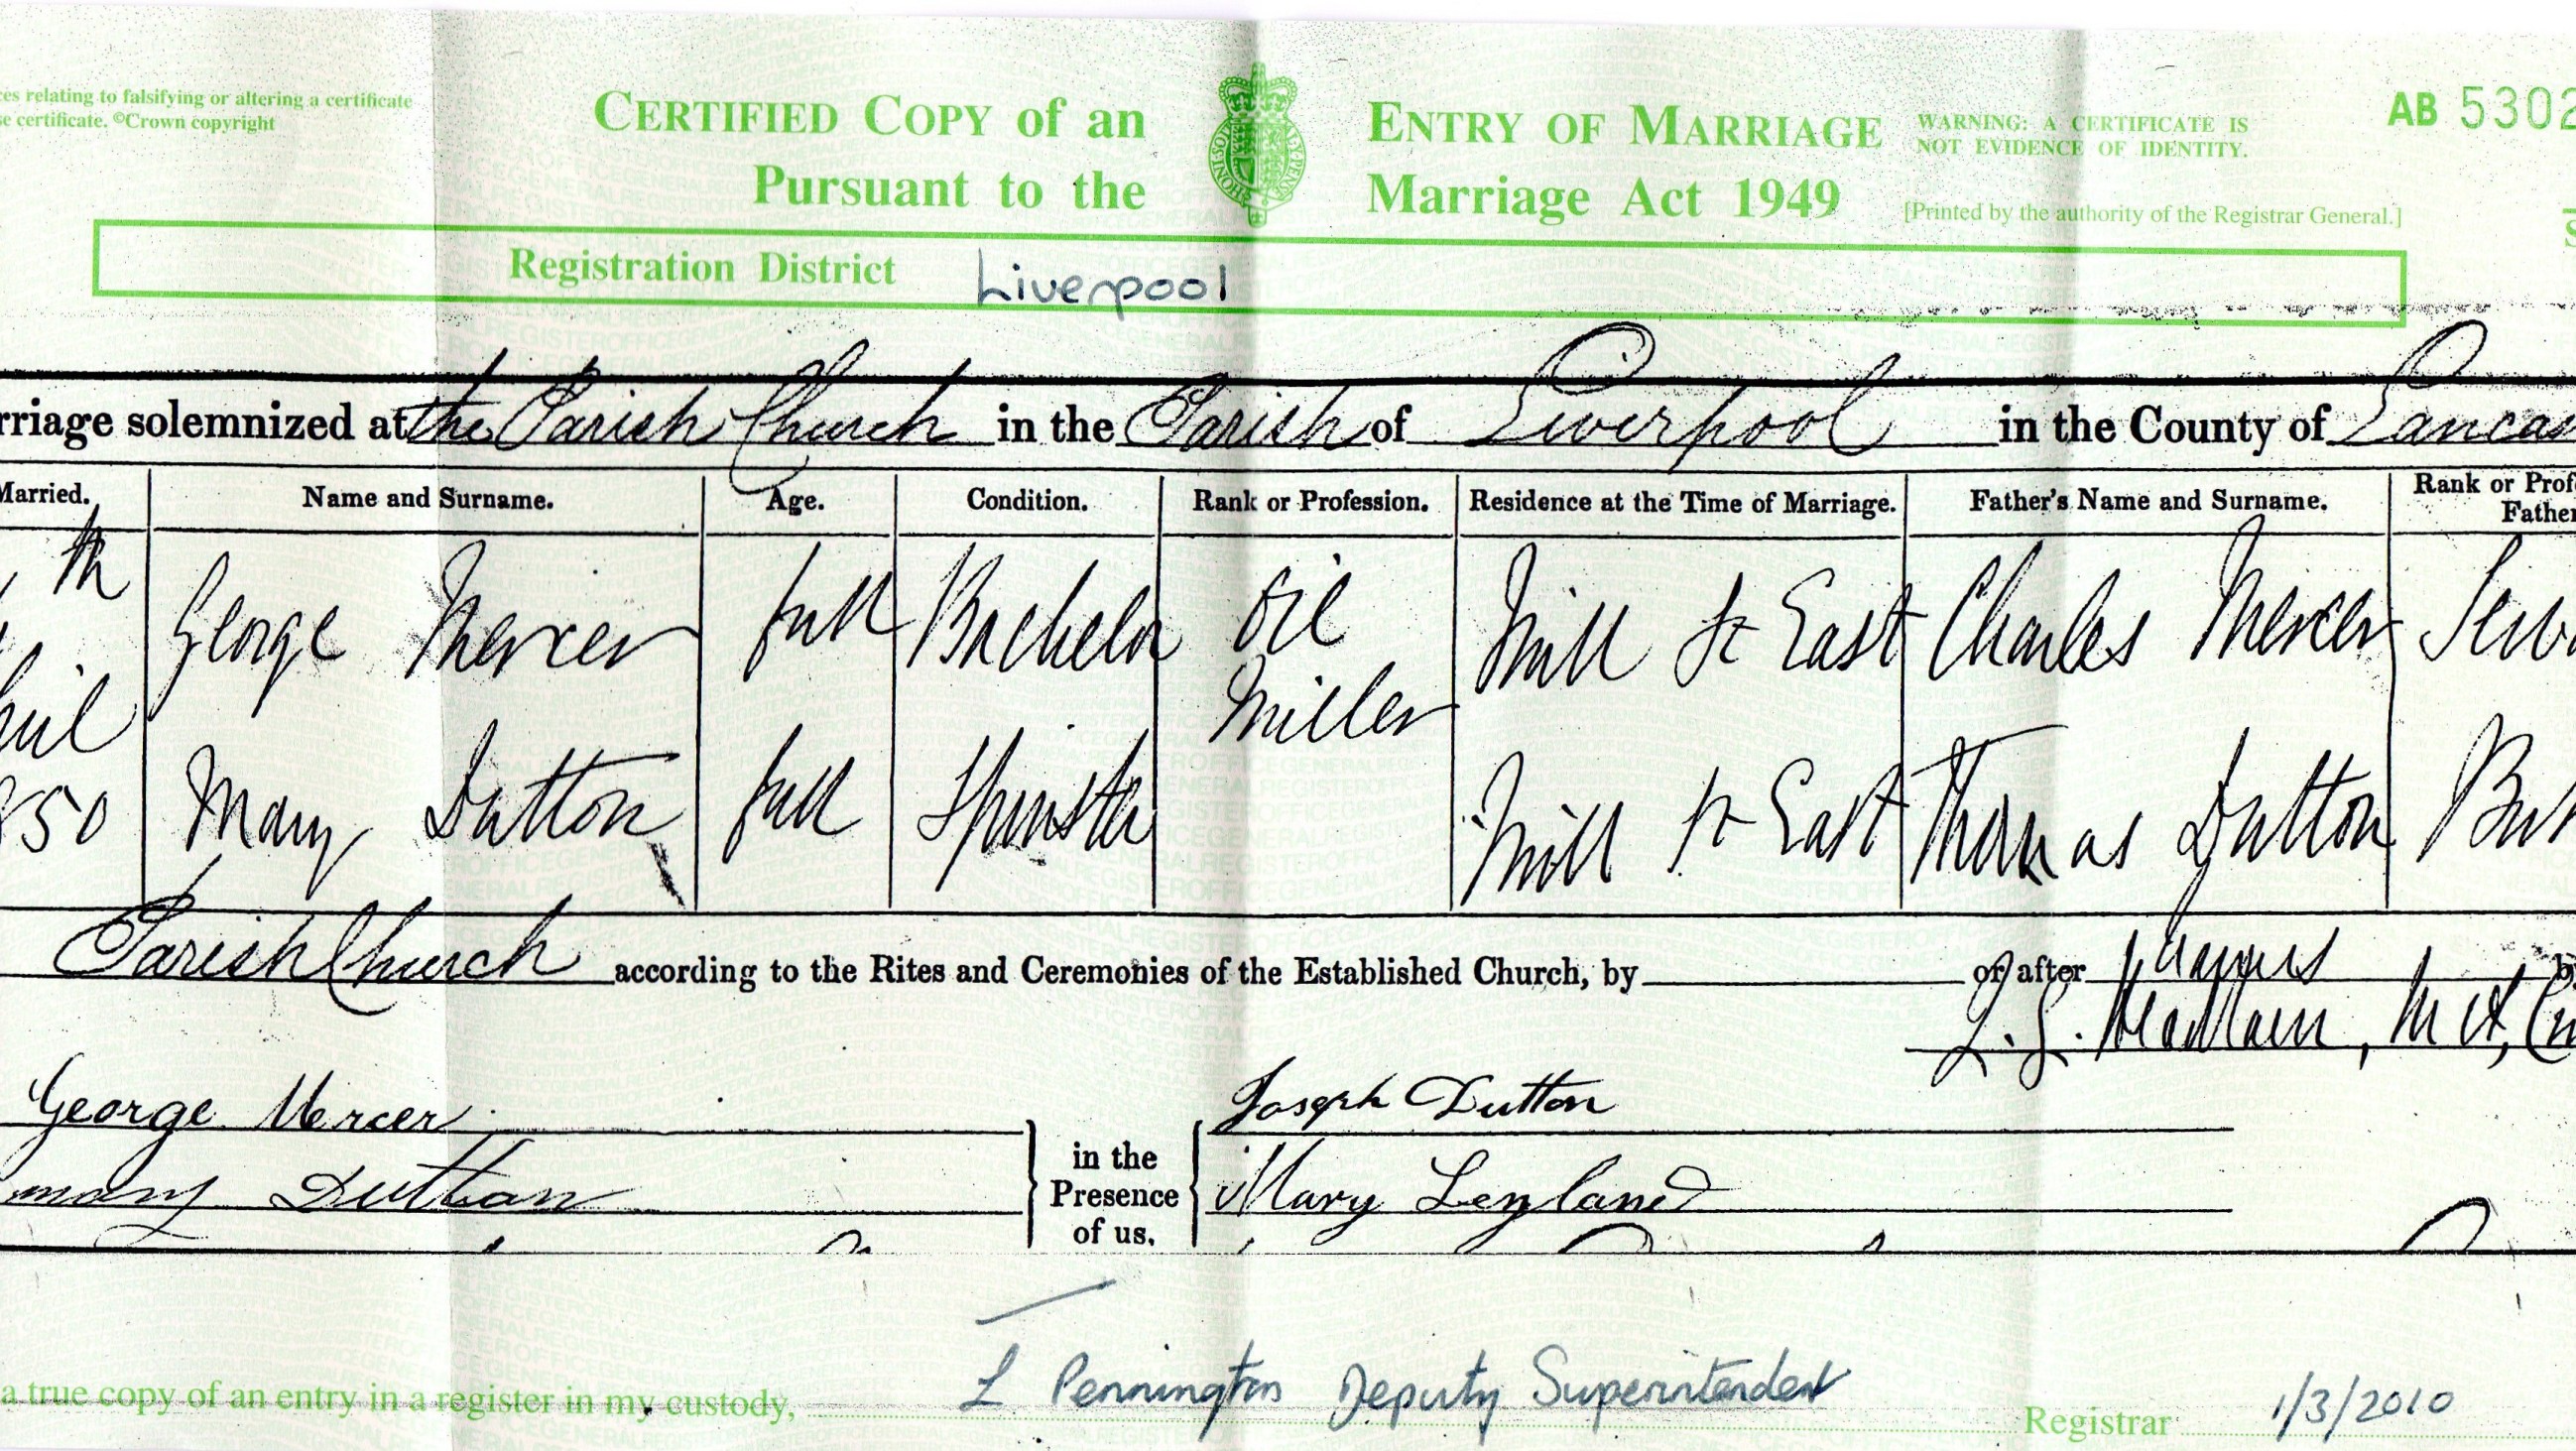 ces relating to falsifying or altering a certificate
se certificate. ©Crown copyright
CERTIFIED COPY of an ENTRY OF MARRIAGE
Pursuant to the Marriage Act 1949
WARNING: A CERTIFICATE IS
NOT EVIDENCE OF IDENTITY.
AB 5302
[Printed by the authority of the Registrar General.]
Registration District Liverpool
rriage solemnized at the Parish Church in the Parish of Liverpool in the County of Lancas
Married. Name and Surname. Age. Condition. Rank or Profession. Residence at the Time of Marriage. Father's Name and Surname. Rank or Prof
Father
th George Mercer full Bachelor Oil Miller Mill St East Charles Mercer
850 Mary Dutton full Spinster Mill St East Thomas Dutton
Parish Church according to the Rites and Ceremonies of the Established Church, by or after
George Mercer
Mary Dutton
in the
Presence
of us.
Joseph Dutton
Mary Leyland
a true copy of an entry in a register in my custody, L Pennington Deputy Superintendent Registrar 1/3/2010